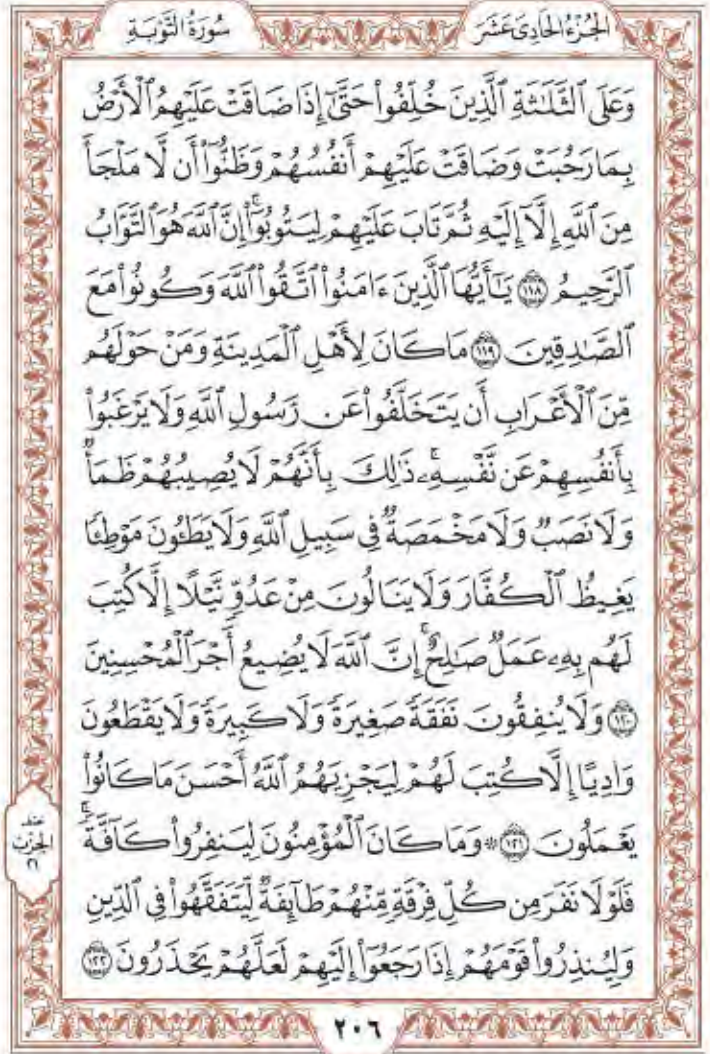 الجُزْءُ الحَادِى عَشَرَ
سُورَةُ التَّوْبَةِ
وَعَلَى ٱلثَّلَٰثَةِ ٱلَّذِينَ خُلِّفُواْ حَتَّىٰٓ إِذَا ضَاقَتْ عَلَيْهِمُ ٱلْأَرْضُ
بِمَا رَحُبَتْ وَضَاقَتْ عَلَيْهِمْ أَنفُسُهُمْ وَظَنُّوٓاْ أَن لَّا مَلْجَأَ
مِنَ ٱللَّهِ إِلَّآ إِلَيْهِ ثُمَّ تَابَ عَلَيْهِمْ لِيَتُوبُوٓاْۚ إِنَّ ٱللَّهَ هُوَ ٱلتَّوَّابُ
ٱلرَّحِيمُ ١١٨ يَٰٓأَيُّهَا ٱلَّذِينَ ءَامَنُواْ ٱتَّقُواْ ٱللَّهَ وَكُونُواْ مَعَ
ٱلصَّٰدِقِينَ ١١٩ مَا كَانَ لِأَهْلِ ٱلْمَدِينَةِ وَمَنْ حَوْلَهُم
مِّنَ ٱلْأَعْرَابِ أَن يَتَخَلَّفُواْ عَن رَّسُولِ ٱللَّهِ وَلَا يَرْغَبُواْ
بِأَنفُسِهِمْ عَن نَّفْسِهِۦۚ ذَٰلِكَ بِأَنَّهُمْ لَا يُصِيبُهُمْ ظَمَأٌ
وَلَا نَصَبٌ وَلَا مَخْمَصَةٌ فِى سَبِيلِ ٱللَّهِ وَلَا يَطَـُٔونَ مَوْطِئًا
يَغِيظُ ٱلْكُفَّارَ وَلَا يَنَالُونَ مِنْ عَدُوٍّ نَّيْلًا إِلَّا كُتِبَ
لَهُم بِهِۦ عَمَلٌ صَٰلِحٌۚ إِنَّ ٱللَّهَ لَا يُضِيعُ أَجْرَ ٱلْمُحْسِنِينَ
١٢٠ وَلَا يُنفِقُونَ نَفَقَةً صَغِيرَةً وَلَا كَبِيرَةً وَلَا يَقْطَعُونَ
وَادِيًا إِلَّا كُتِبَ لَهُمْ لِيَجْزِيَهُمُ ٱللَّهُ أَحْسَنَ مَا كَانُواْ
يَعْمَلُونَ ١٢١ ۞ وَمَا كَانَ ٱلْمُؤْمِنُونَ لِيَنفِرُواْ كَآفَّةًۚ
فَلَوْلَا نَفَرَ مِن كُلِّ فِرْقَةٍ مِّنْهُمْ طَآئِفَةٌ لِّيَتَفَقَّهُواْ فِى ٱلدِّينِ
وَلِيُنذِرُواْ قَوْمَهُمْ إِذَا رَجَعُوٓاْ إِلَيْهِمْ لَعَلَّهُمْ يَحْذَرُونَ ١٢٢
الحِزْبُ
٢١
٢٠٦